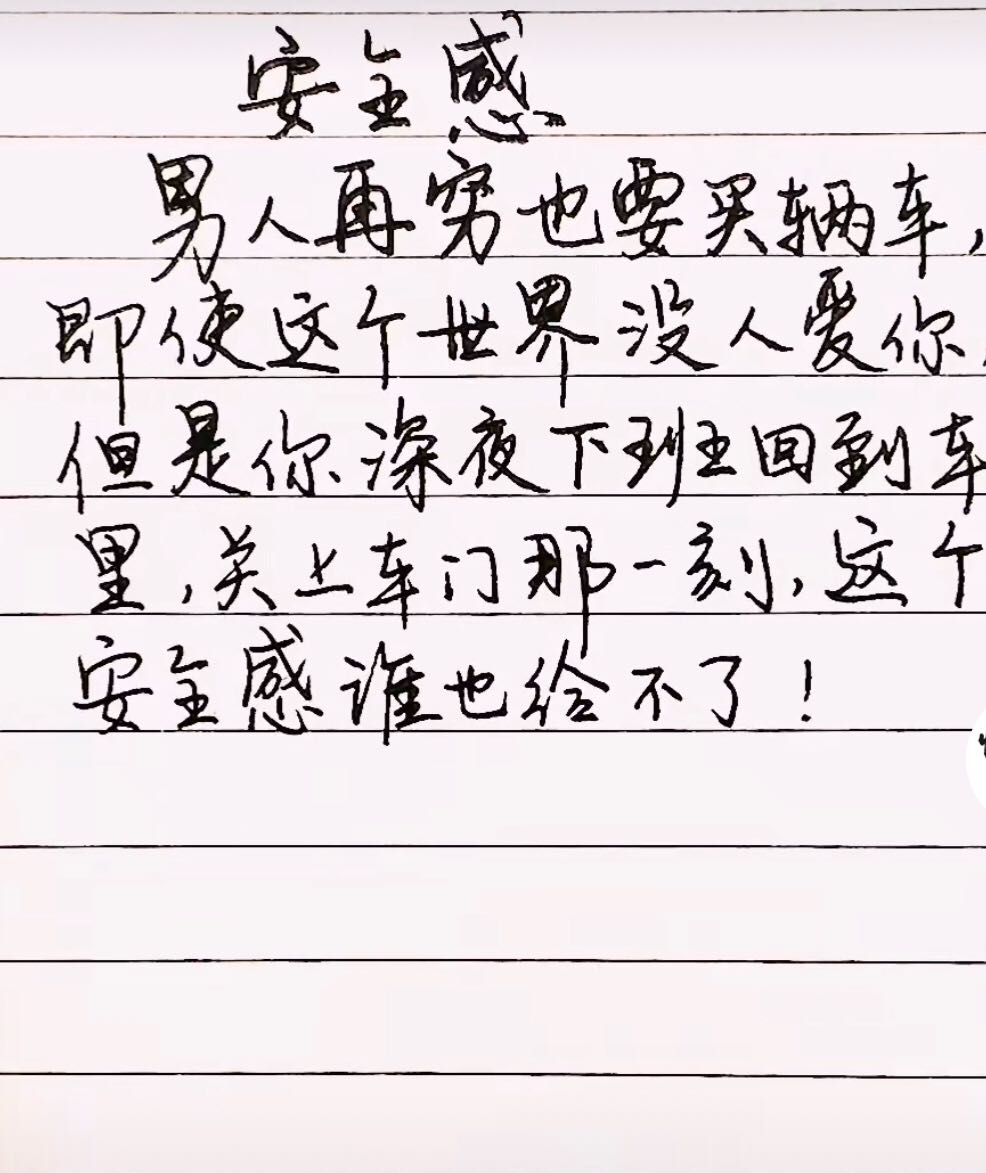 安全感
男人再穷也要买辆车,
即使这个世界没人爱你,
但是你深夜下班回到车
里,关上车门那一刻,这个
安全感谁也给不了!